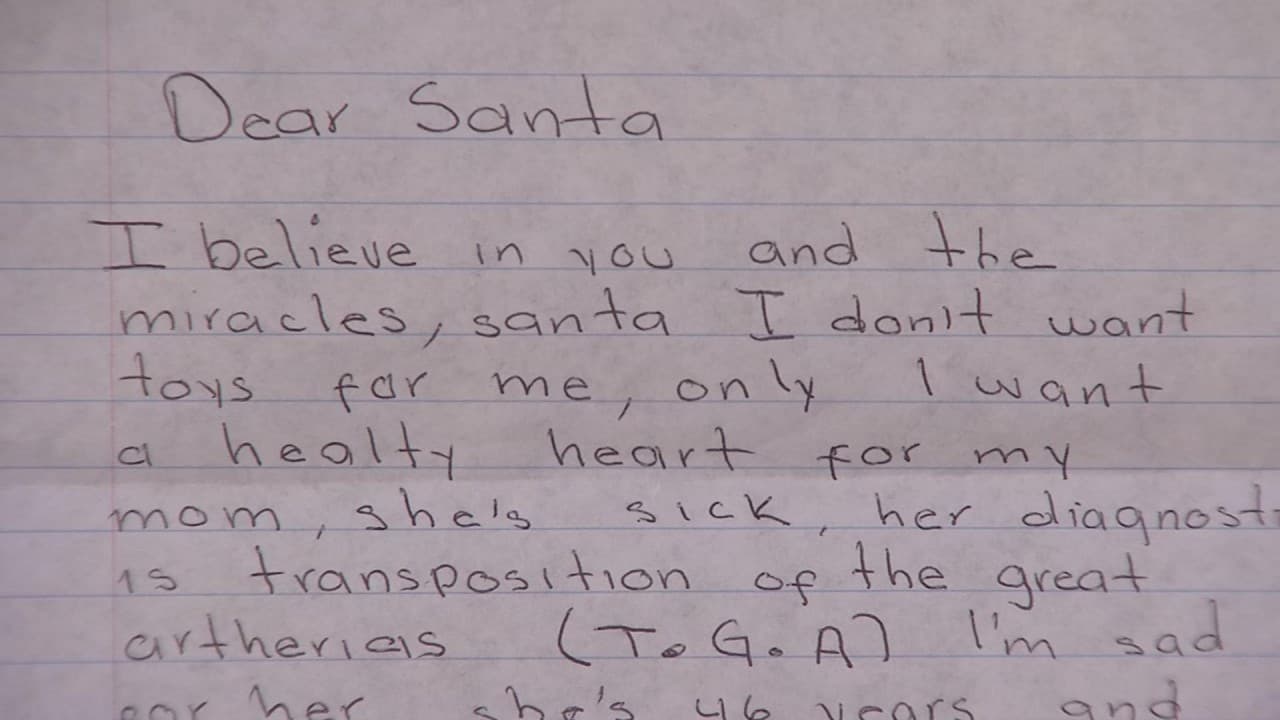 Dear Santa
I believe in you and the
miracles, santa I don't want
toys for me, only I want
a healty heart for my
mom, she's sick, her diagnost
is transposition of the great
artherias (T.G.A) I'm sad
her she's 46 years and